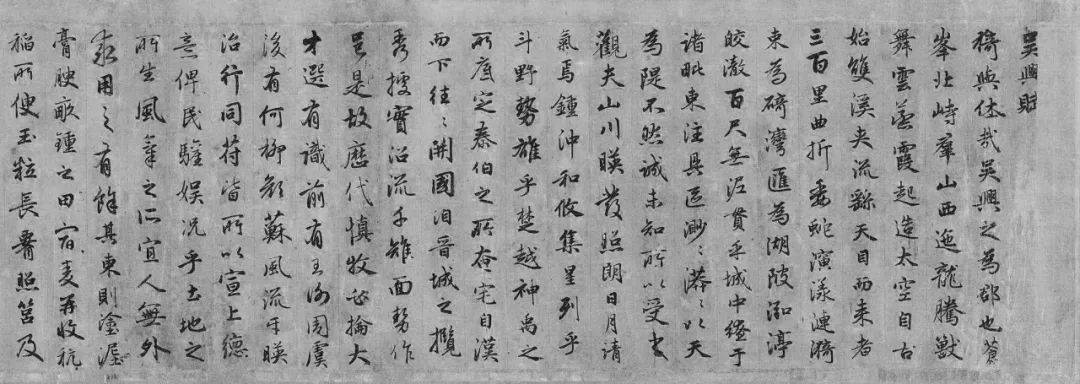 吳興賦
猗與休哉吳興之為郡也蒼
峯北峙羣山西迤龍騰獸
舞雲蒸霞起造太空自古
始雙溪夾流繇天目而来者
三百里曲折委蛇演漾漣漪
束為碕灣匯為湖陂泓渟
皎澈百尺無泥貫乎城中繚于
諸毗東注具區渺〻漭〻以天
為隄不然誠未知所以受之
觀夫山川暎發照朗日月清
氣焉鍾沖和攸集星列乎
斗野勢雄乎楚越神禹之
所底定泰伯之所奄宅自漢
而下往〻開國洎晉城之攬
秀據實沿流千雉面勢作
邑是故歷代慎牧必掄大
才選有識前有王謝周虞
後有何柳顏蘇風流互暎
治行同符皆所以宣上德
意俾民驩娛況乎土地之
所生風氣之所宜人無外
求用之有餘其東則塗泥
膏腴畝鍾之田宿麥再收秔
稻所便玉粒長腰照筥及